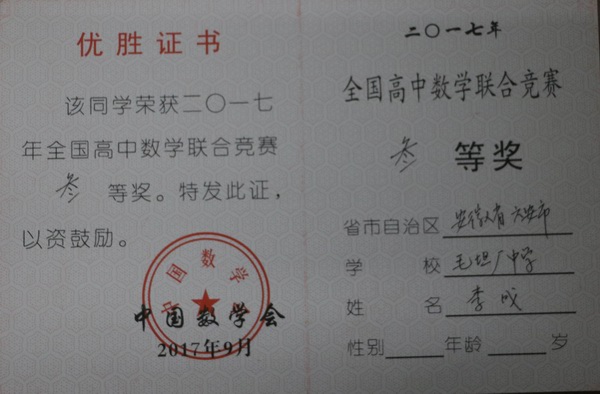 优胜证书
该同学荣获二〇一七
年全国高中数学联合竞赛
叁 等奖。特发此证，
以资鼓励。
中国数学
中国数学会
2017年9月
二〇一七年
全国高中数学联合竞赛
叁 等奖
省市自治区 安徽省六安市
学校 毛坦厂中学
姓名 李成
性别 年龄 岁